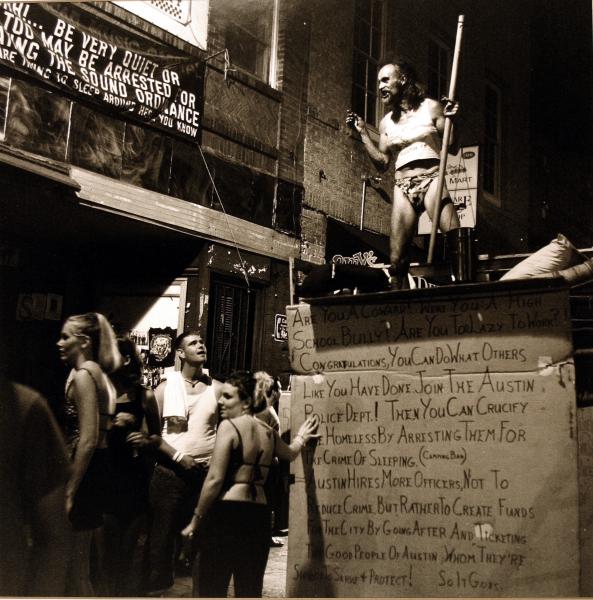 ... BE VERY QUIET OR
TOO MAY BE ARRESTED, OR
THE SOUND ORDINANCE
TRYING TO SLEEP AROUND HERE, YOU KNOW
MART
ARE YOU A COWARD? WERE YOU A HIGH
SCHOOL BULLY? ARE YOU TOO LAZY TO WORK?!
CONGRATULATIONS, YOU CAN DO WHAT OTHERS
LIKE YOU HAVE DONE. JOIN THE AUSTIN
POLICE DEPT.! THEN YOU CAN CRUCIFY
THE HOMELESS BY ARRESTING THEM FOR
THE CRIME OF SLEEPING. (CAMPING BAN)
AUSTIN HIRES MORE OFFICERS, NOT TO
REDUCE CRIME, BUT RATHER TO CREATE FUNDS
FOR THE CITY BY GOING AFTER AND TICKETING
THE GOOD PEOPLE OF AUSTIN WHOM THEY'RE
SWORN TO SERVE + PROTECT! SO IT GOES.